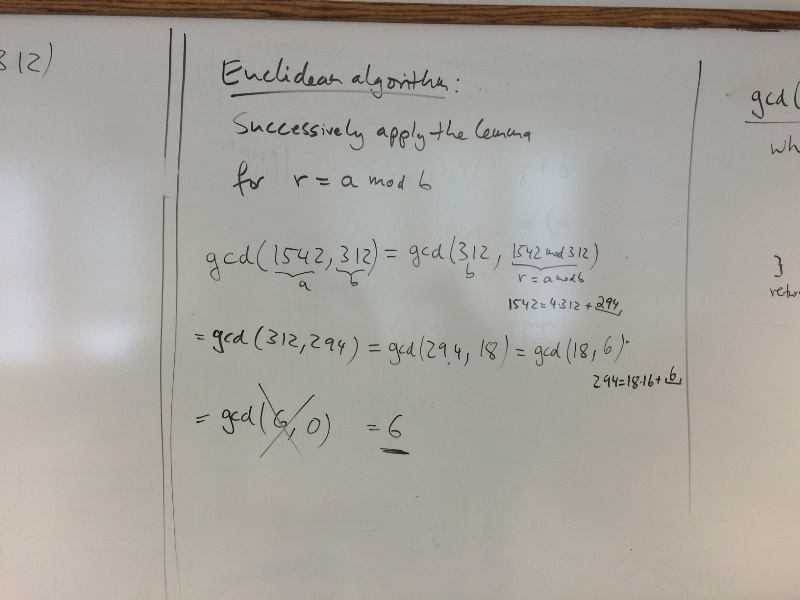 312)
Euclidean algorithm:
Successively apply the lemma
for r = a mod b
gcd(1542,312) = gcd(312, 1542 mod 312)
a b b r = a mod b
1542=4·312+294
= gcd(312,294) = gcd(294, 18) = gcd(18,6)
294=18·16+6
= gcd(6, 0) = 6
gcd(
wh
}
return